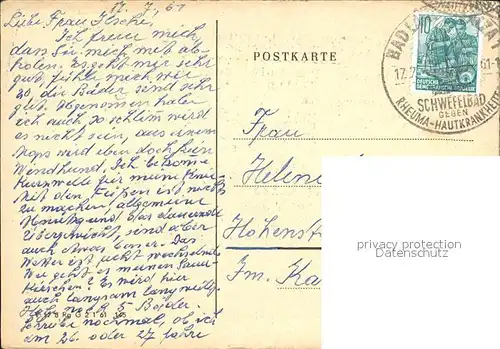 17. 7. 61
Liebe Frau
Ich freue mich,
daß Sie mich mit ab-
holen. Es geht mir sehr
gut, fühle mich wie
20, die Bäder sind sehr
gut. Abgenommen habe
ich auch, so schlimm wird
es nicht sein, aus einem
Mops wird eben doch kein
Windhund. Ich bekomme
für meine Knie.
Mit den Füßen ist nichts
zu machen, allgemeine
und das dauernde
Übergewicht sind aber
auch etwas besser. Das
Wetter ist jetzt wechselnd.
Wie geht es meinen Sauer-
kirschen? Es wird hier
auch langsam langweilig.
Habe noch 5 Bäder.
Schreibe nochmal, ob ich
am 26. oder 27. fahre
POSTKARTE
BAD
17.7.61-1
SCHWEFELBAD
GEGEN
RHEUMA-HAUTKRANKHEITEN
10
DEUTSCHE
DEMOKRATISCHE REPUBLIK
Frau
Helen
Hohenst
Im. Ka
privacy protection
Datenschutz